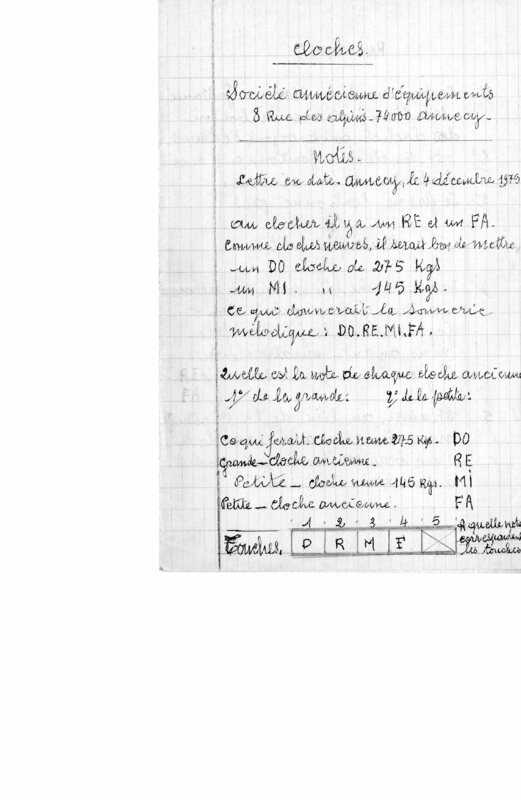 cloches.
Société annécienne d'équipements
8 Rue des alpins - 74000 annecy -
Notes.
Lettre en date - annecy, le 4 décembre 1979
au clocher il y a un RE et un FA.
comme cloches neuves, il serait bon de mettre,
un DO cloche de 275 Kgs
un MI. " 145 Kgs.
ce qui donnerait la sonnerie
mélodique : DO.RE.MI.FA.
Quelle est la note de chaque cloche ancienne
1° de la grande : 2° de la petite :
Ce qui ferait cloche neuve 275 Kgs - DO
Grande - cloche ancienne. RE
Petite - cloche neuve 145 Kgs. MI
Petite - cloche ancienne. FA
1 2 3 4 5
Touches. D R M F
A quelle note
correspondent
les touches